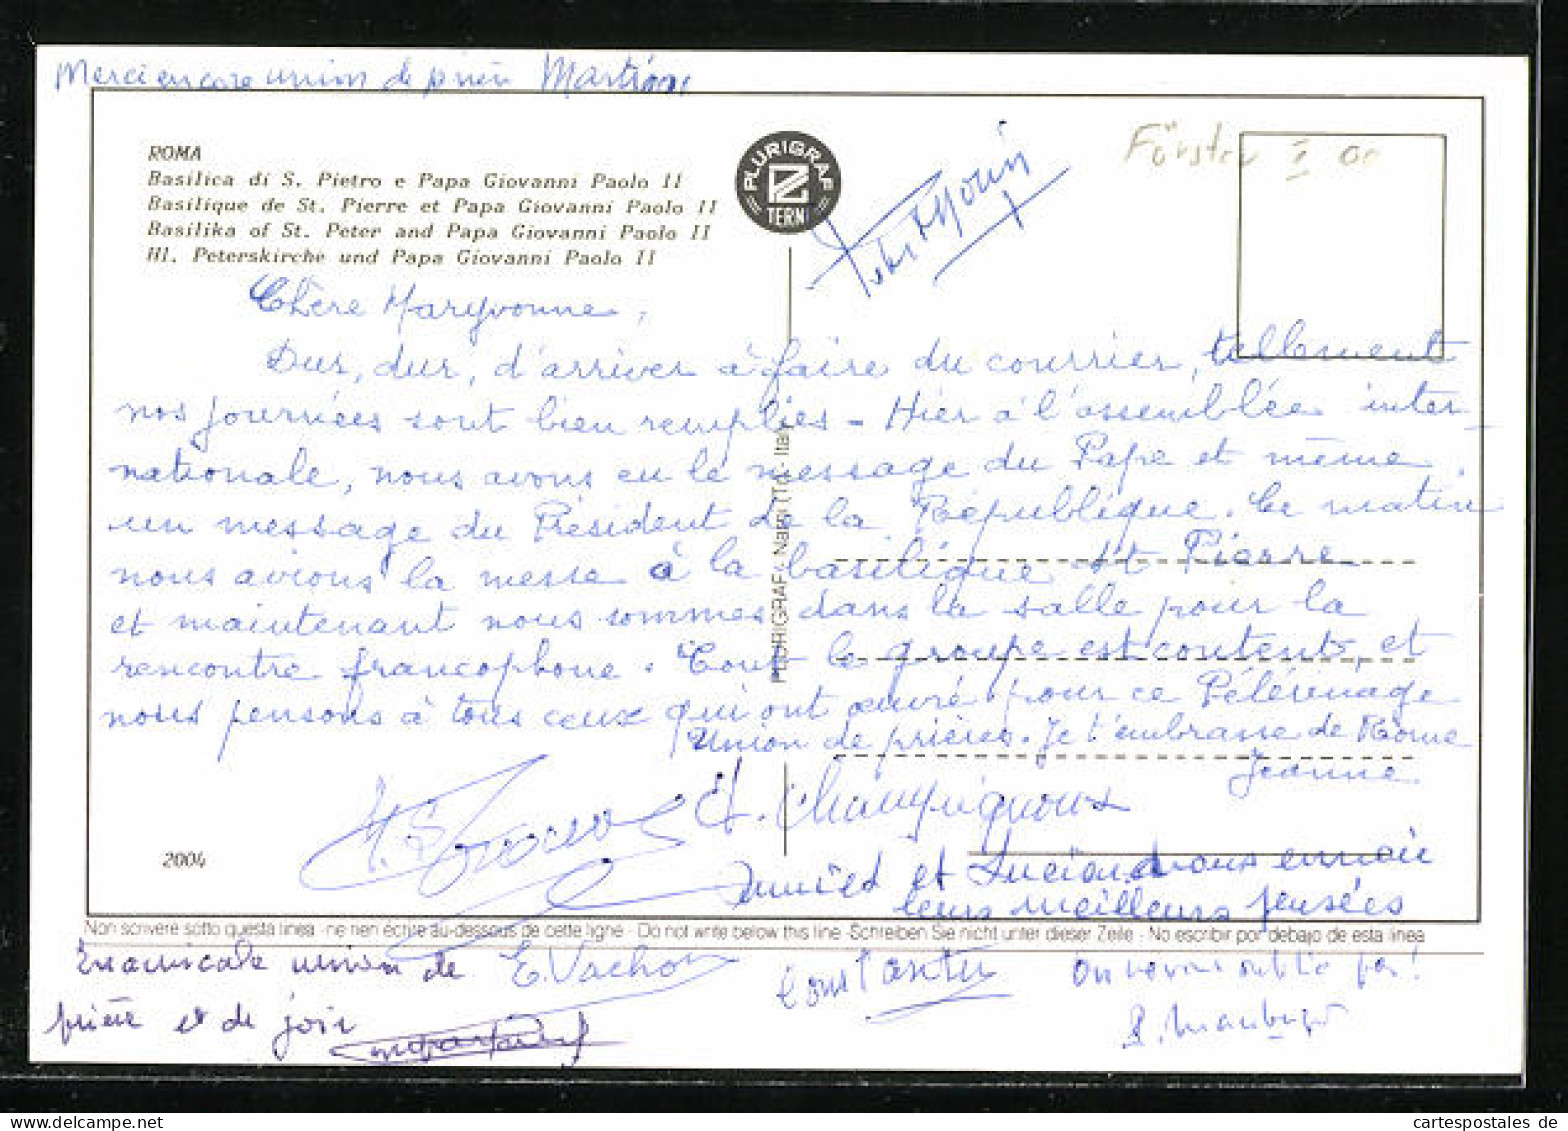 Merci encore union de prière Martine
ROMA
Basilica di S. Pietro e Papa Giovanni Paolo II
Basilique de St. Pierre et Papa Giovanni Paolo II
Basilika of St. Peter and Papa Giovanni Paolo II
Hl. Peterskirche und Papa Giovanni Paolo II
PLURIGRAF
TERNI
Förster
Chère Maryvonne,
Dur, dur, d'arriver à faire du courrier, tellement
nos journées sont bien remplies - Hier à l'assemblée inter-
nationale, nous avons eu le message du Pape et même
un message du Président de la République. Ce matin
nous avions la messe à la basilique st Pierre
et maintenant nous sommes dans la salle pour la
rencontre francophone. Tout le groupe est content, et
nous pensons à tous ceux qui ont œuvré pour ce Pélérinage
Union de prières. Je t'embrasse de Rome
Jeanne
PLURIGRAF - Narni (Tr) - Italy
et Lucien nous envoie
leurs meilleurs pensées
2004
Non scrivere sotto questa linea - ne rien écrire au-dessous de cette ligne - Do not write below this line - Schreiben Sie nicht unter dieser Zeile - No escribir por debajo de esta linea
union de
prière et de joie
E. Vachon
On ne vous oublie pas!
cartespostales de